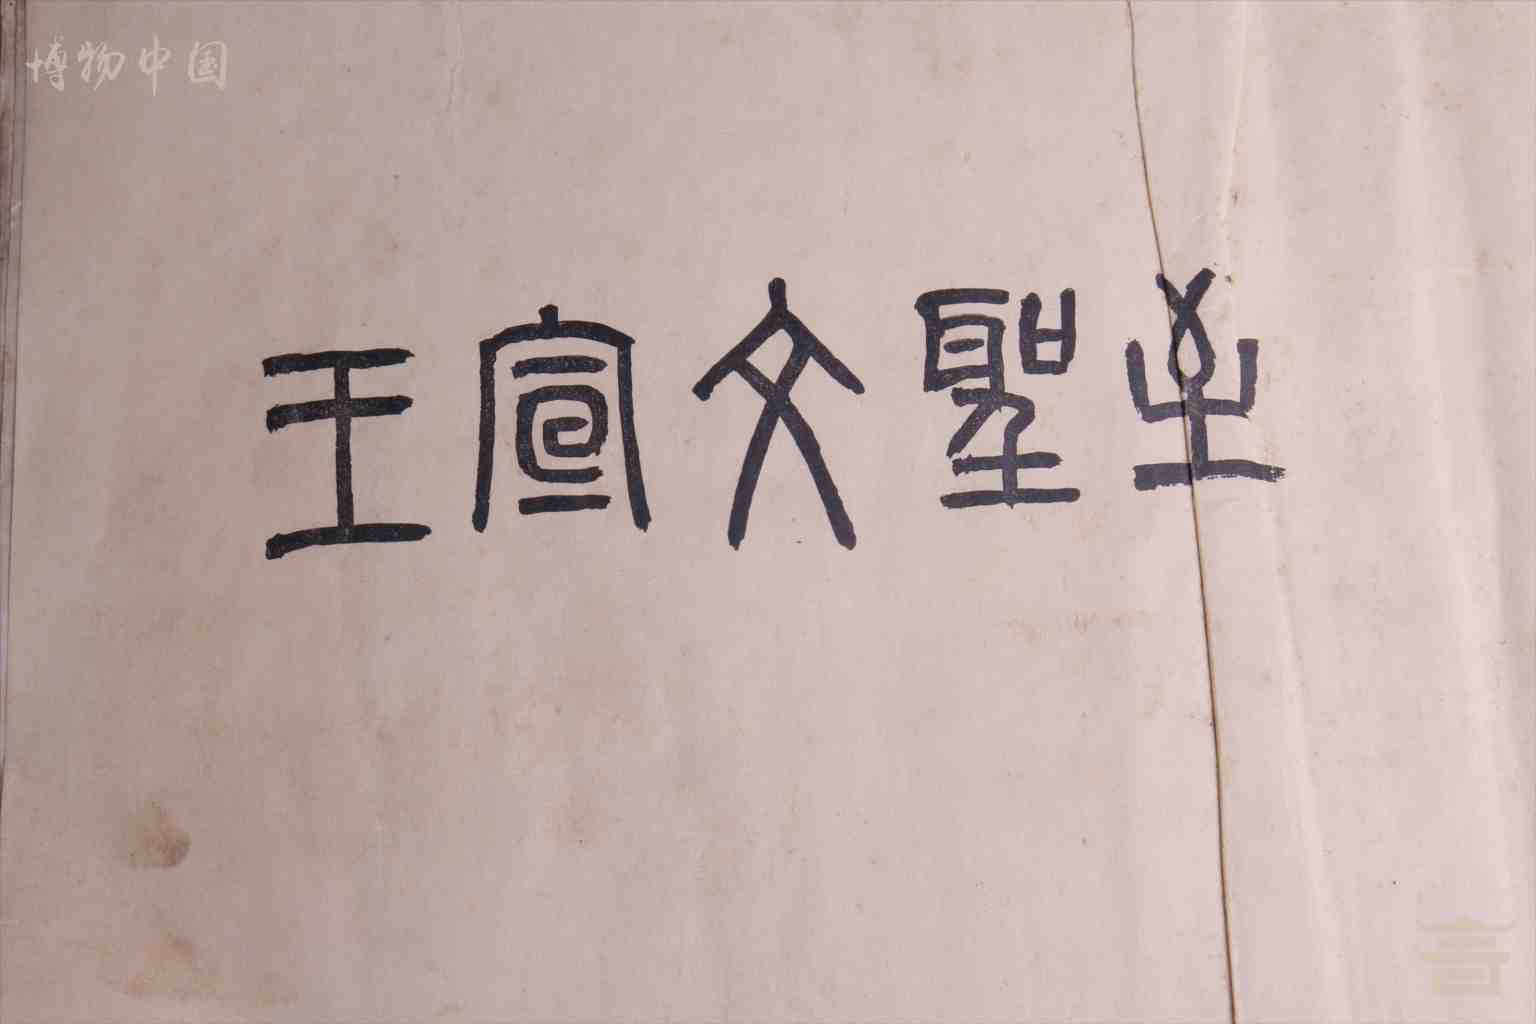 博物中国
至聖文宣王